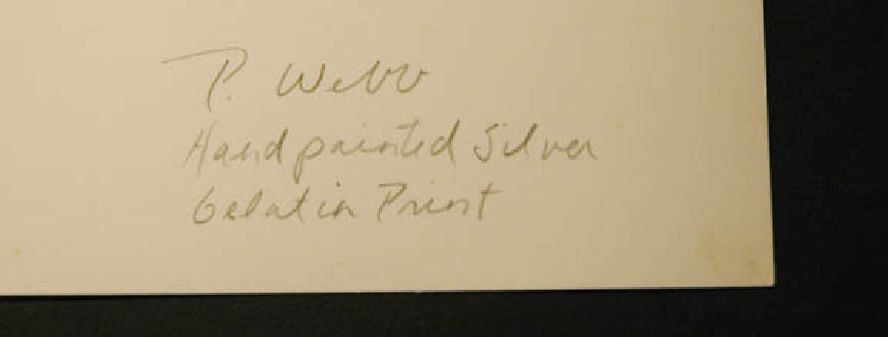 P. Webb
Hand painted Silver
Gelatin Print